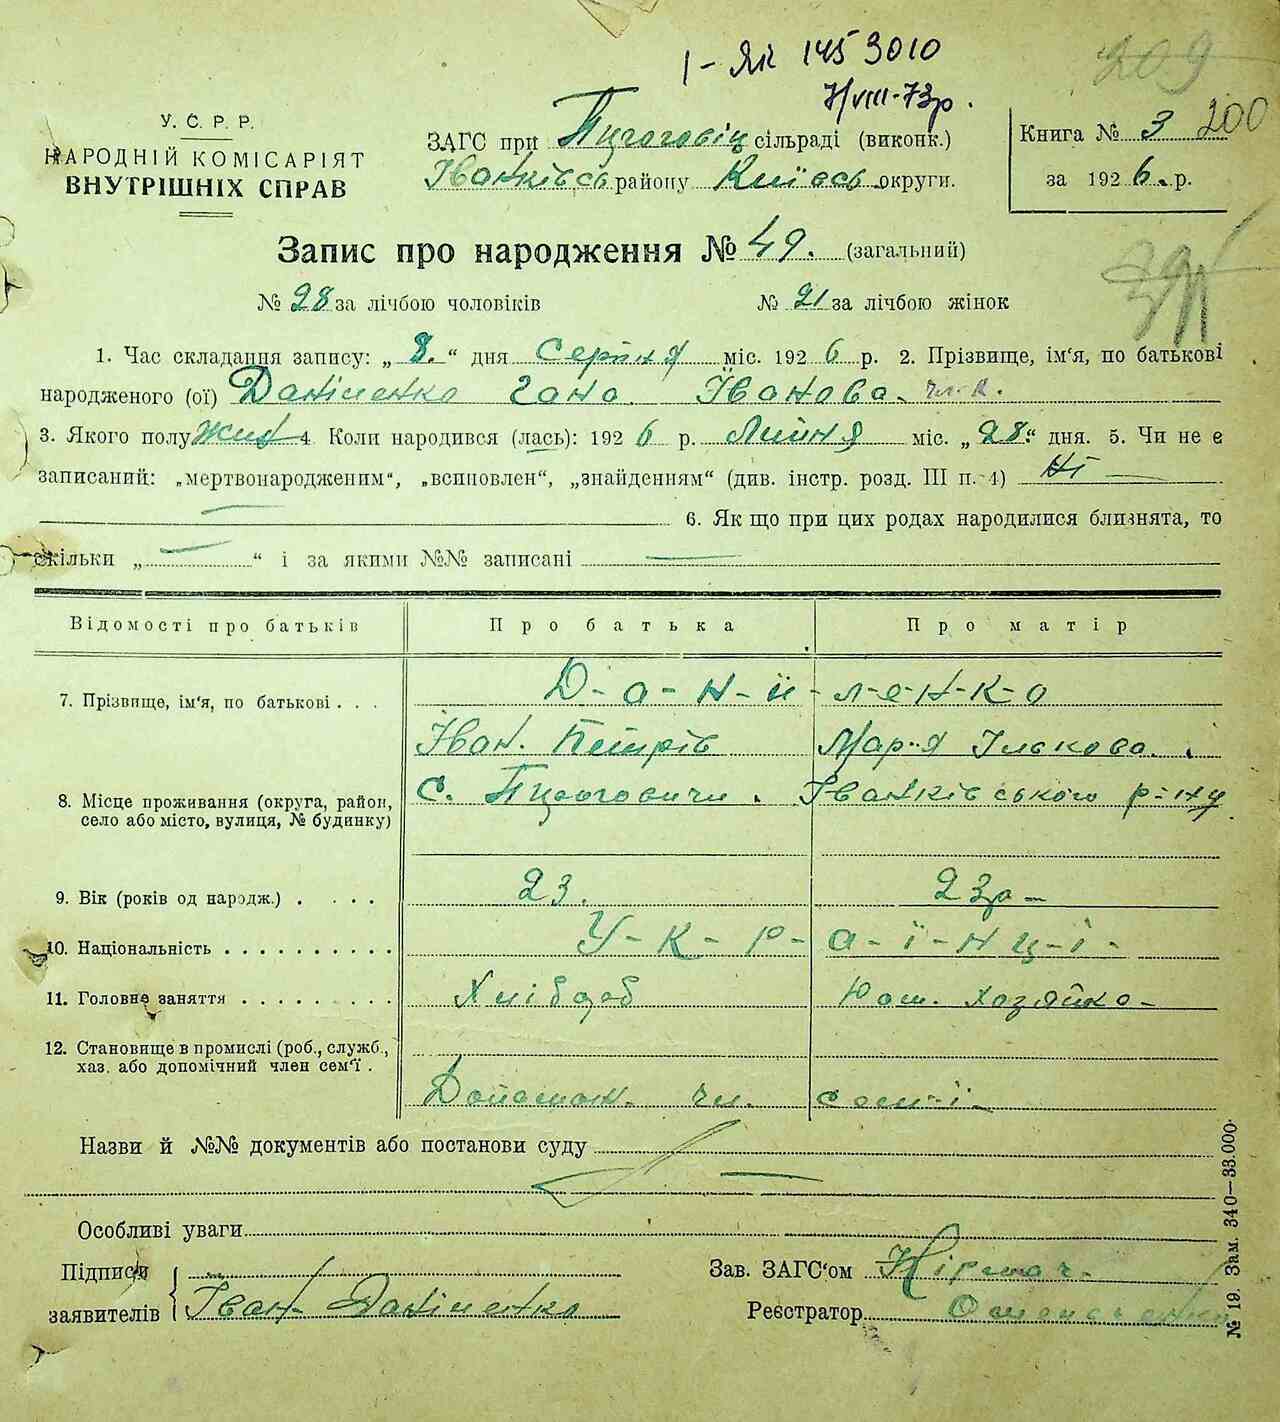 I - ЯК 145 3010
7/VIII-73р.
209
200
У. С. Р. Р.
НАРОДНІЙ КОМІСАРІЯТ
ВНУТРІШНІХ СПРАВ
ЗАГС при сільраді (виконк.)
Іванківсь району Київсь округи.
Книга № 3
за 1926. р.
Запис про народження № 49. (загальний)
№ 28 за лічбою чоловіків № 21 за лічбою жінок
1. Час складання запису: „ 8. “ дня Серпня міс. 1926 р. 2. Прізвище, ім'я, по батькові
народженого (ої) Даніленко Гана Іванова.
3. Якого полу Жін 4 Коли народився (лась): 1926 р. Липня міс. „28.“ дня. 5. Чи не є
записаний: „мертвонародженим“, „всиновлен“, „знайденням“ (див. інстр. розд. III п. 4) Ні
6. Як що при цих родах народилися близнята, то
скільки „ “ і за якими №№ записані
Відомості про батьків Про батька Про матір
7. Прізвище, ім'я, по батькові . . . Д-а-н-и-л-е-н-к-о
Іван. Петрів Мар-я Ількова.
8. Місце проживання (округа, район, село або місто, вулиця, № будинку) с. Іванківського р-ну
9. Вік (років од народж.) . . . . 23. 23р-
10. Національність . . . . . . . . . . У-к-р-а-ї-н-ц-і-
11. Головне заняття . . . . . . . . . Хлібороб Дом. хозяйка-
12. Становище в промислі (роб., служб., хаз. або допомічний член сем'ї .
Допомож. чл. сем-ї-
Назви й №№ документів або постанови суду
Особливі уваги
Підписи заявителів { Іван Даніленко
Зав. ЗАГС'ом
Реєстратор
№ 19. Зам. 340—33.000.